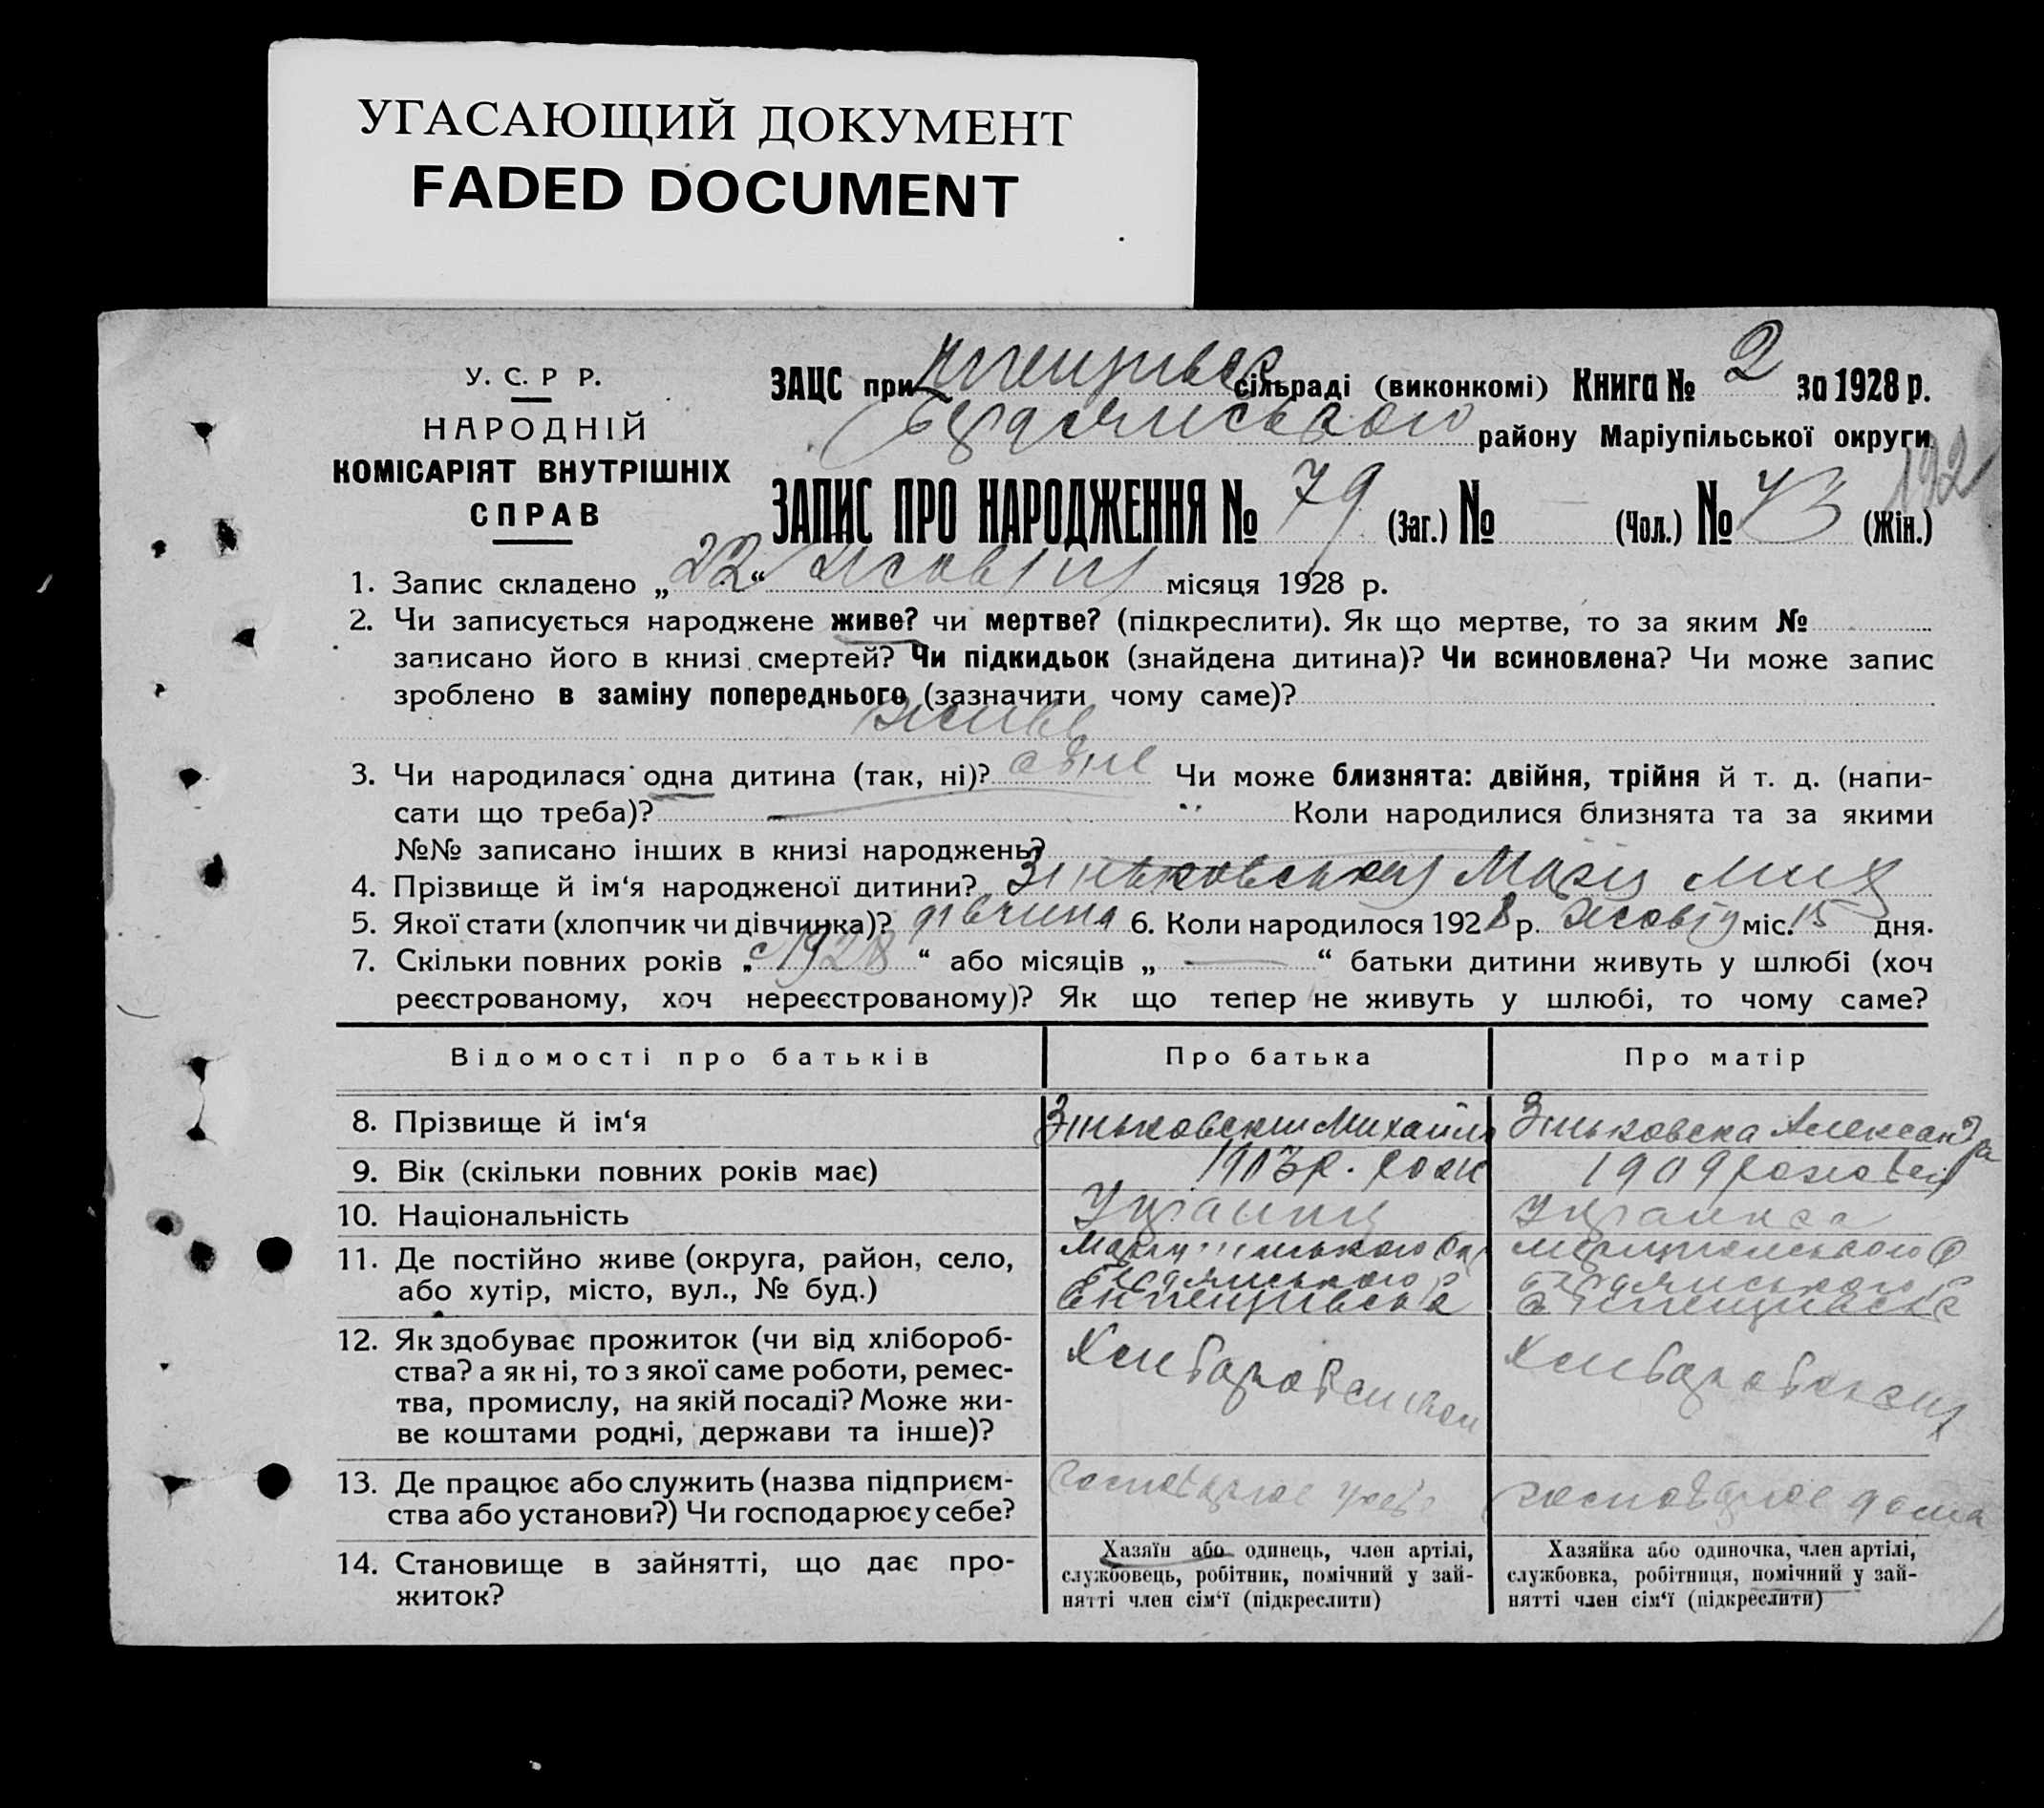 УГАСАЮЩИЙ ДОКУМЕНТ
FADED DOCUMENT
У. С. Р Р.
НАРОДНІЙ
КОМІСАРІЯТ ВНУТРІШНІХ
СПРАВ
ЗАЦС при сільраді (виконкомі) Книга № 2 за 1928 р.
району Маріупільської округи
192
ЗАПИС ПРО НАРОДЖЕННЯ № 79 (Заг.) № — (Чол.) № 43 (Жін.)
1. Запис складено „ 22 “ жовтня місяця 1928 р.
2. Чи записується народжене живе? чи мертве? (підкреслити). Як що мертве, то за яким №
записано його в книзі смертей? Чи підкидьок (знайдена дитина)? Чи всиновлена? Чи може запис
зроблено в заміну попереднього (зазначити чому саме)?
живе
3. Чи народилася одна дитина (так, ні)? одне Чи може близнята: двійня, трійня й т. д. (напи-
сати що треба)? — Коли народилися близнята та за якими
№№ записано інших в книзі народжень?
4. Прізвище й ім‘я народженої дитини? Зіньковська Марія
5. Якої стати (хлопчик чи дівчинка)? дівчина 6. Коли народилося 1928 р. жовтня міс. 15 дня.
7. Скільки повних років „ с 1928 “ або місяців „ — “ батьки дитини живуть у шлюбі (хоч
реєстрованому, хоч нереєстрованому)? Як що тепер не живуть у шлюбі, то чому саме?
Відомості про батьків Про батька Про матір
8. Прізвище й ім‘я Зіньковский Михайло Зіньковска Александра
9. Вік (скільки повних років має) 1903 р. рож 1909 рожден
10. Національність Украинец Украинка
11. Де постійно живе (округа, район, село,
або хутір, місто, вул., № буд.)
Маріупільського Маріупільського
12. Як здобуває прожиток (чи від хлібороб-
ства? а як ні, то з якої саме роботи, ремес-
тва, промислу, на якій посаді? Може жи-
ве коштами родні, держави та інше)?
13. Де працює або служить (назва підприєм-
ства або установи?) Чи господарює у себе?
господарює господарює дома
14. Становище в зайнятті, що дає про-
житок?
Хазяїн або одинець, член артілі,
службовець, робітник, помічний у зай-
нятті член сім‘ї (підкреслити)
Хазяйка або одиночка, член артілі,
службовка, робітниця, помічний у зай-
нятті член сім‘ї (підкреслити)